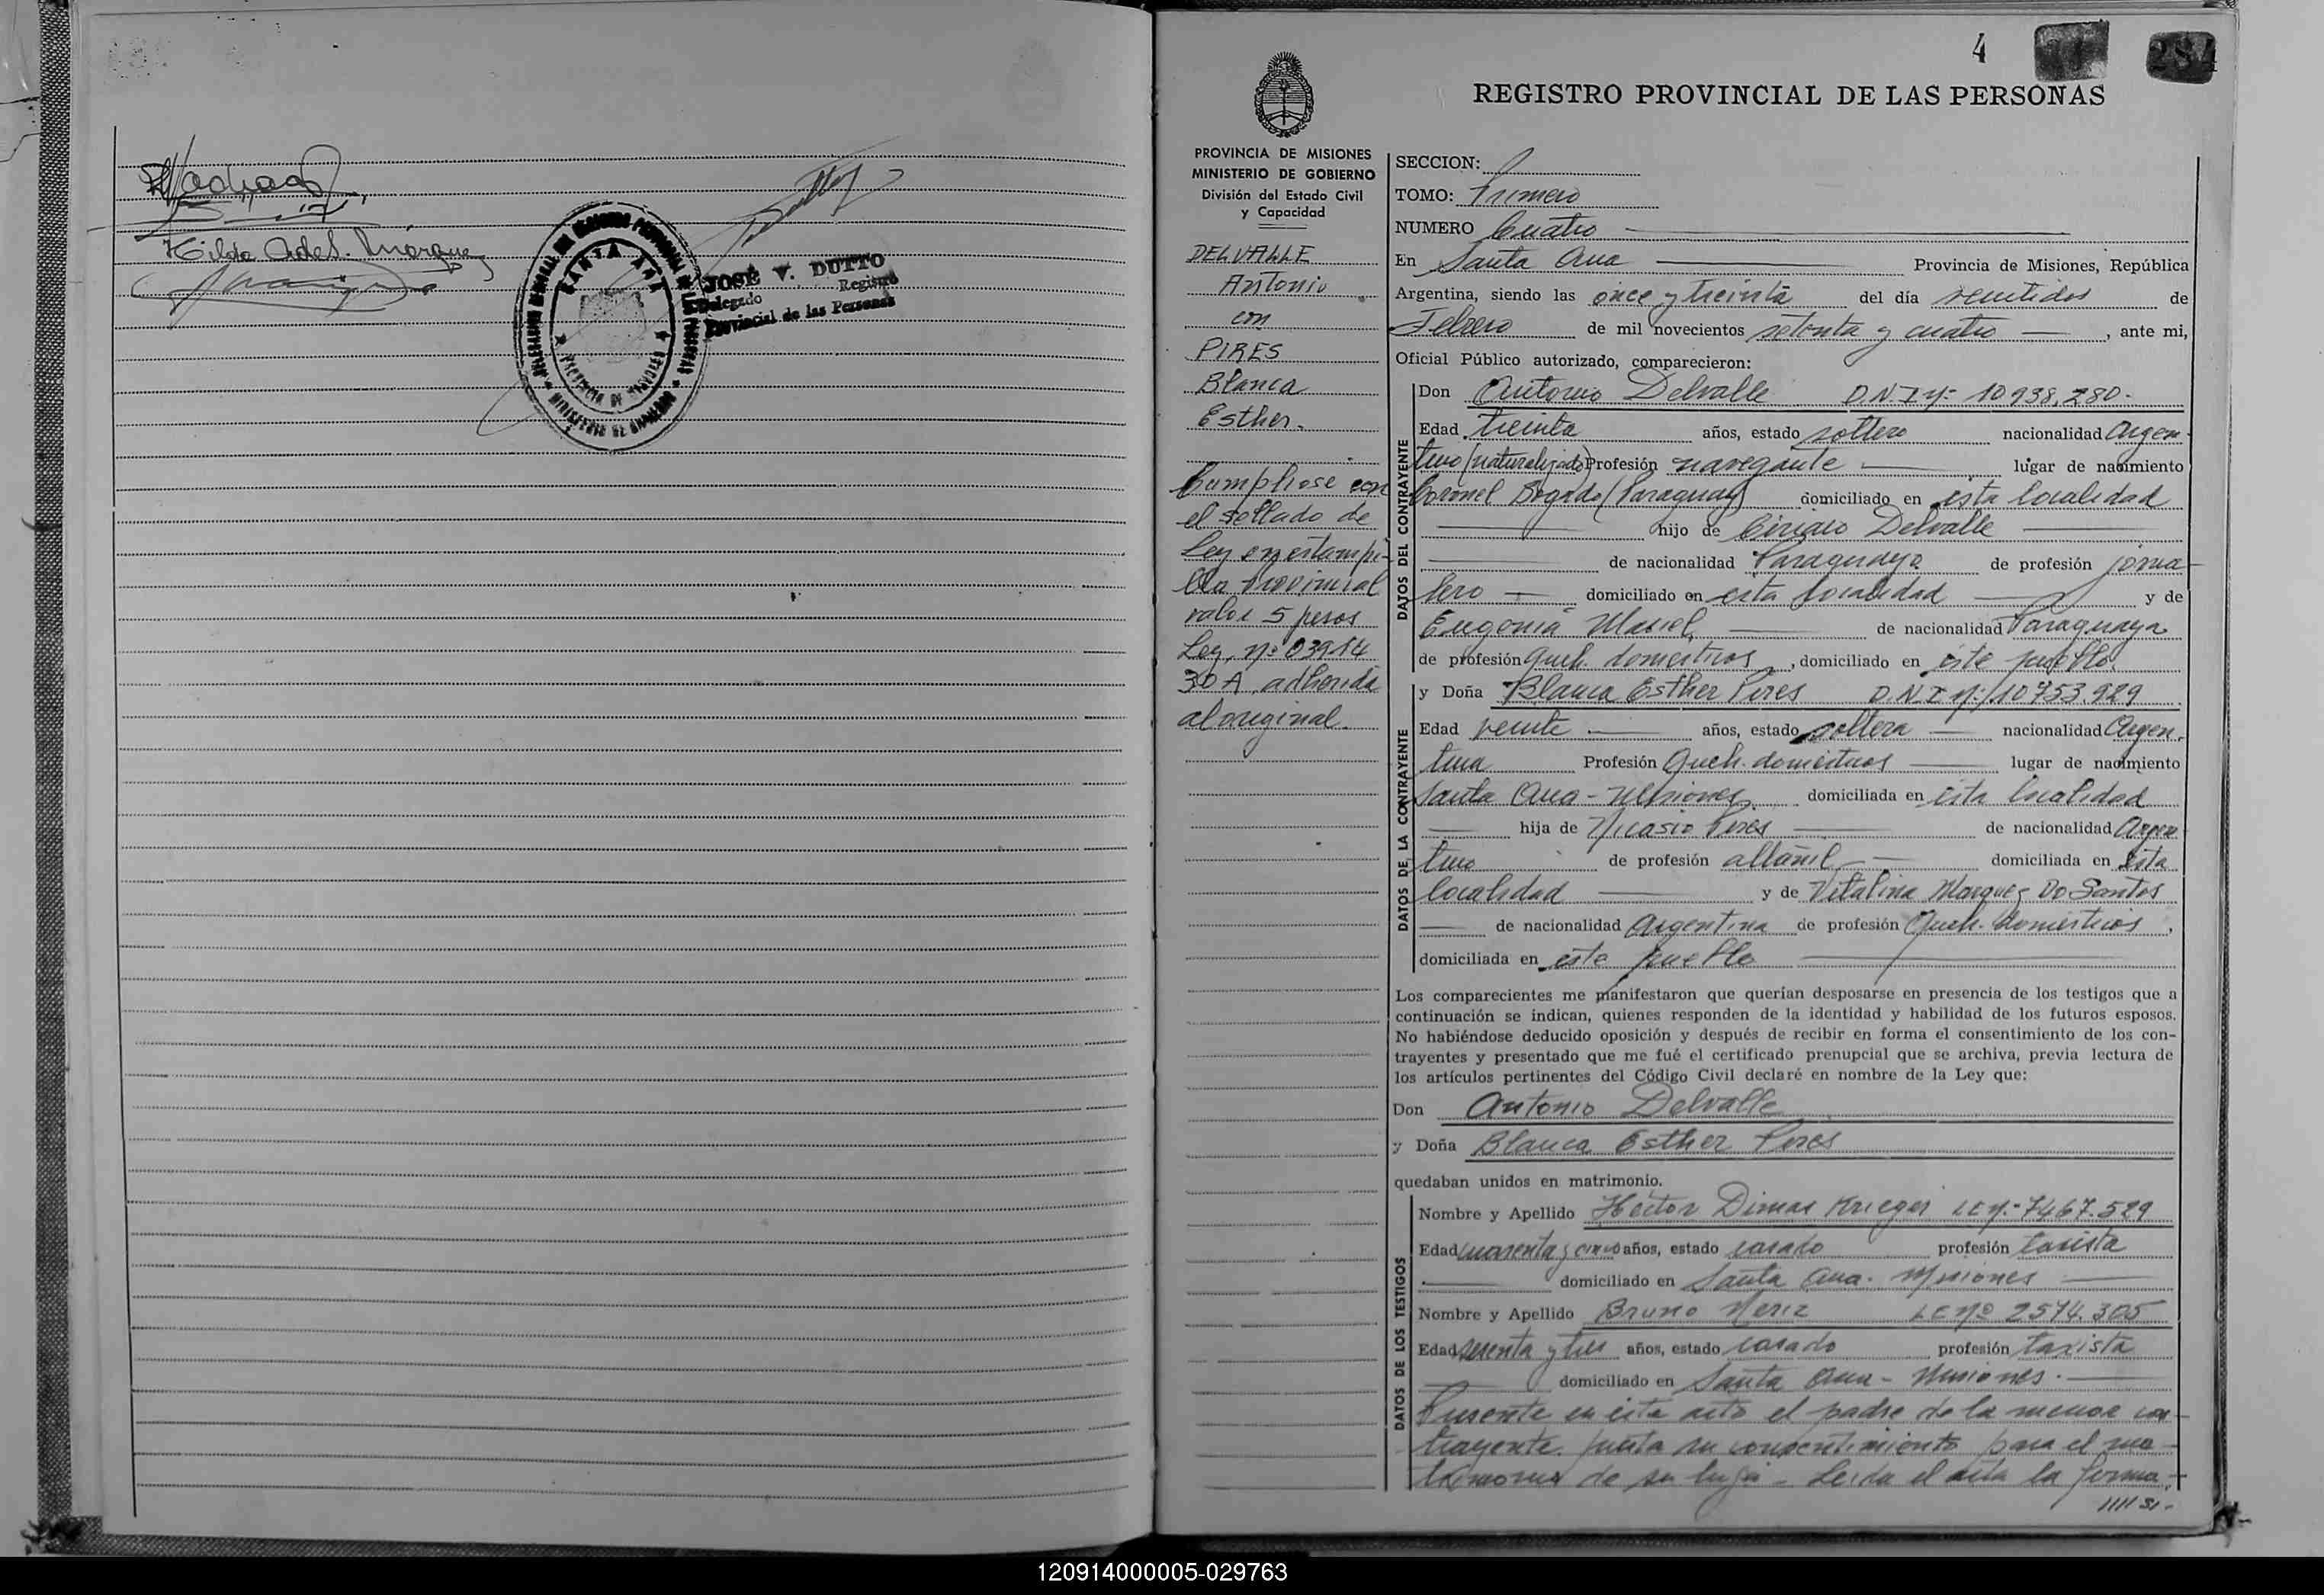 Hilda Adel. Marquez
SANTA ANA
PROVINCIA DE MISIONES
MINISTERIO DE GOBIERNO
JOSÉ V. DUTTO
Delegado Registro
Provincial de las Personas
4
284
REGISTRO PROVINCIAL DE LAS PERSONAS
PROVINCIA DE MISIONES
MINISTERIO DE GOBIERNO
División del Estado Civil
y Capacidad
DELVALLE
Antonio
con
PIRES
Blanca
Esther.
Cumpliose con
el sellado de
Ley en estampi-
lla provincial
valor 5 pesos
Ley, nº 03914
30 A, adherida
al original.
SECCION:
TOMO: Primero
NUMERO Cuatro
En Santa Ana Provincia de Misiones, República
Argentina, siendo las once y treinta del día veintidos de
Febrero de mil novecientos setenta y cuatro, ante mi,
Oficial Público autorizado, comparecieron:
DATOS DEL CONTRAYENTE
Don Antonio Delvalle D.N.I nº 10.938.280.-
Edad treinta años, estado soltero nacionalidad Argen-
tino (naturalizado) Profesión navegante lugar de nacimiento
Coronel Bogado (Paraguay) domiciliado en esta localidad
hijo de Ciriaco Delvalle
de nacionalidad Paraguaya de profesión jorna-
lero domiciliado en esta localidad y de
Eugenia Maciel, de nacionalidad Paraguaya
de profesión Queh. domesticos, domiciliado en este pueblo.
DATOS DE LA CONTRAYENTE
y Doña Blanca Esther Pires D.N.I nº 10.753.929
Edad veinte años, estado soltera nacionalidad Argen-
tina Profesión Queh. domésticos lugar de nacimiento
Santa Ana - Misiones domiciliada en esta localidad
hija de Nicasio Pires de nacionalidad Argen
tino de profesión albañil domiciliada en esta
localidad y de Vitalina Marques Do Santos
de nacionalidad Argentina de profesión Queh. domésticos,
domiciliada en este pueblo
Los comparecientes me manifestaron que querían desposarse en presencia de los testigos que a
continuación se indican, quienes responden de la identidad y habilidad de los futuros esposos.
No habiéndose deducido oposición y después de recibir en forma el consentimiento de los con-
trayentes y presentado que me fué el certificado prenupcial que se archiva, previa lectura de
los artículos pertinentes del Código Civil declaré en nombre de la Ley que:
Don Antonio Delvalle
y Doña Blanca Esther Pires
quedaban unidos en matrimonio.
DATOS DE LOS TESTIGOS
Nombre y Apellido Hector Dimas Krieger LE nº 7467.529
Edad cuarenta y cinco años, estado casado profesión taxista
domiciliado en Santa Ana - Misiones
Nombre y Apellido Bruno Neriz LE nº 2574.305
Edad sesenta y tres años, estado casado profesión taxista
domiciliado en Santa Ana - Misiones.
Presente en este acto el padre de la menor con-
trayente presta su consentimiento para el ma-
trimonio de su hija - Leida el acta la firma-
120914000005-029763